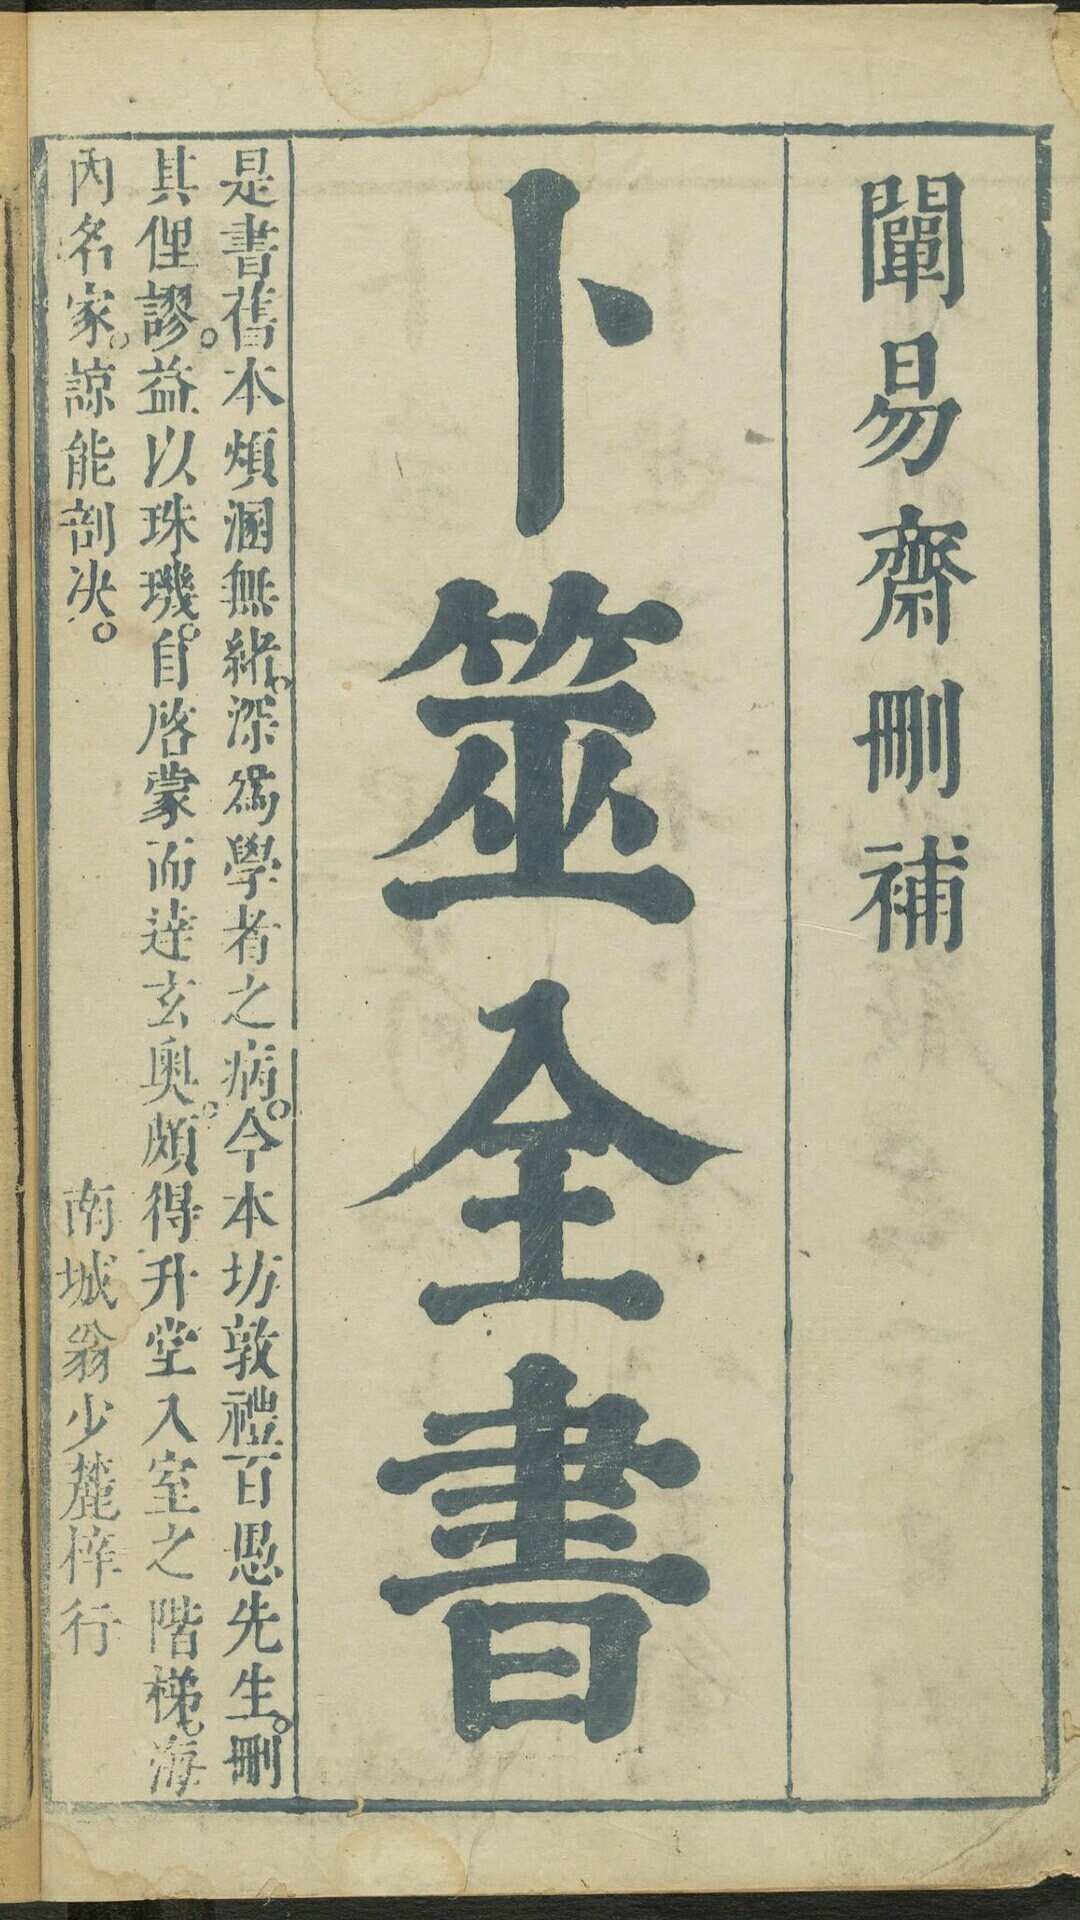 闡易齋刪補
卜筮全書
是書舊本煩溷無緒。深爲學者之病。今本坊敦禮百愚先生。刪
其俚謬。益以珠璣。自啓蒙而達玄奥。頗得升堂入室之階梯。海
內名家。諒能剖决。 南城翁少麓梓行